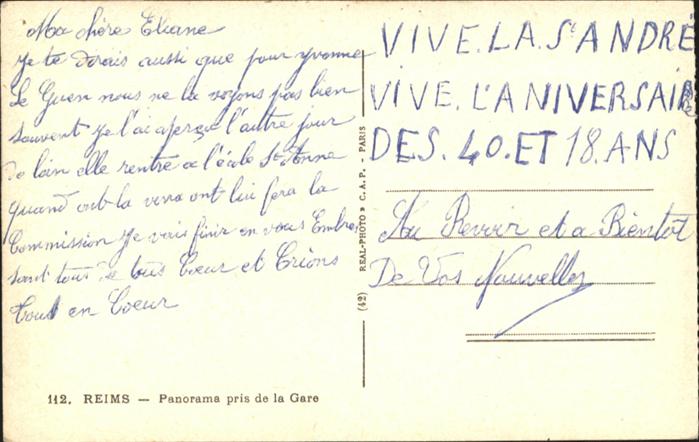 Ma chère Eliane
Je te dirais aussi que pour yvonne
Le Guen nous ne la voyons pas bien
souvent je l'ai aperçu l'autre jour
De loin elle rentre a l'école Ste Anne
quand ont la verra ont lui fera la
Commission Je vais finir en vous Embras
sant tous De tous Coeur et Crions
tous en Coeur
VIVE.LA.St ANDRÉ
VIVE.L'ANIVERSAIRE
DES.40.ET 18.ANS
Au Revoir et a Bientot
De Vos Nouvelles
(42) REAL-PHOTO C.A.P. - PARIS
112. REIMS — Panorama pris de la Gare